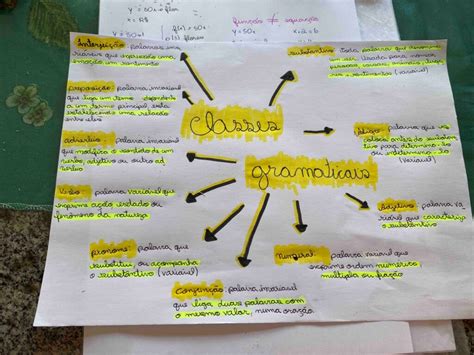 y = 50x
função
Interjeição: palavras inva
riáveis que expressam uma
emoção ou sentimento
substantivo: toda palavra que denomina
um ser, usada para nomear
pessoas
e sentimentos (variável)
preposição: palavra invariável
que liga um termo dependente
a um termo principal
estabelecendo uma relação
entre eles
classes
gramaticais
advérbio: palavra invariável
que modifica o sentido do
verbo, adjetivo ou outro ad
vérbio
Artigo: palavra que se
coloca antes do substan
tivo para determiná-lo
ou indeterminá-lo
(variável)
Verbo: palavra variável que
exprime ação, estado ou
fenômeno da natureza
Adjetivo: palavra va
riável que caracteriza
o substantivo
pronome: palavra que
substitui ou acompanha
o substantivo (variável)
Numeral: palavra variável que
exprime ordem numérica,
múltipla ou fração
Conjunção: palavra invariável
que liga duas palavras com
o mesmo valor, numa oração.